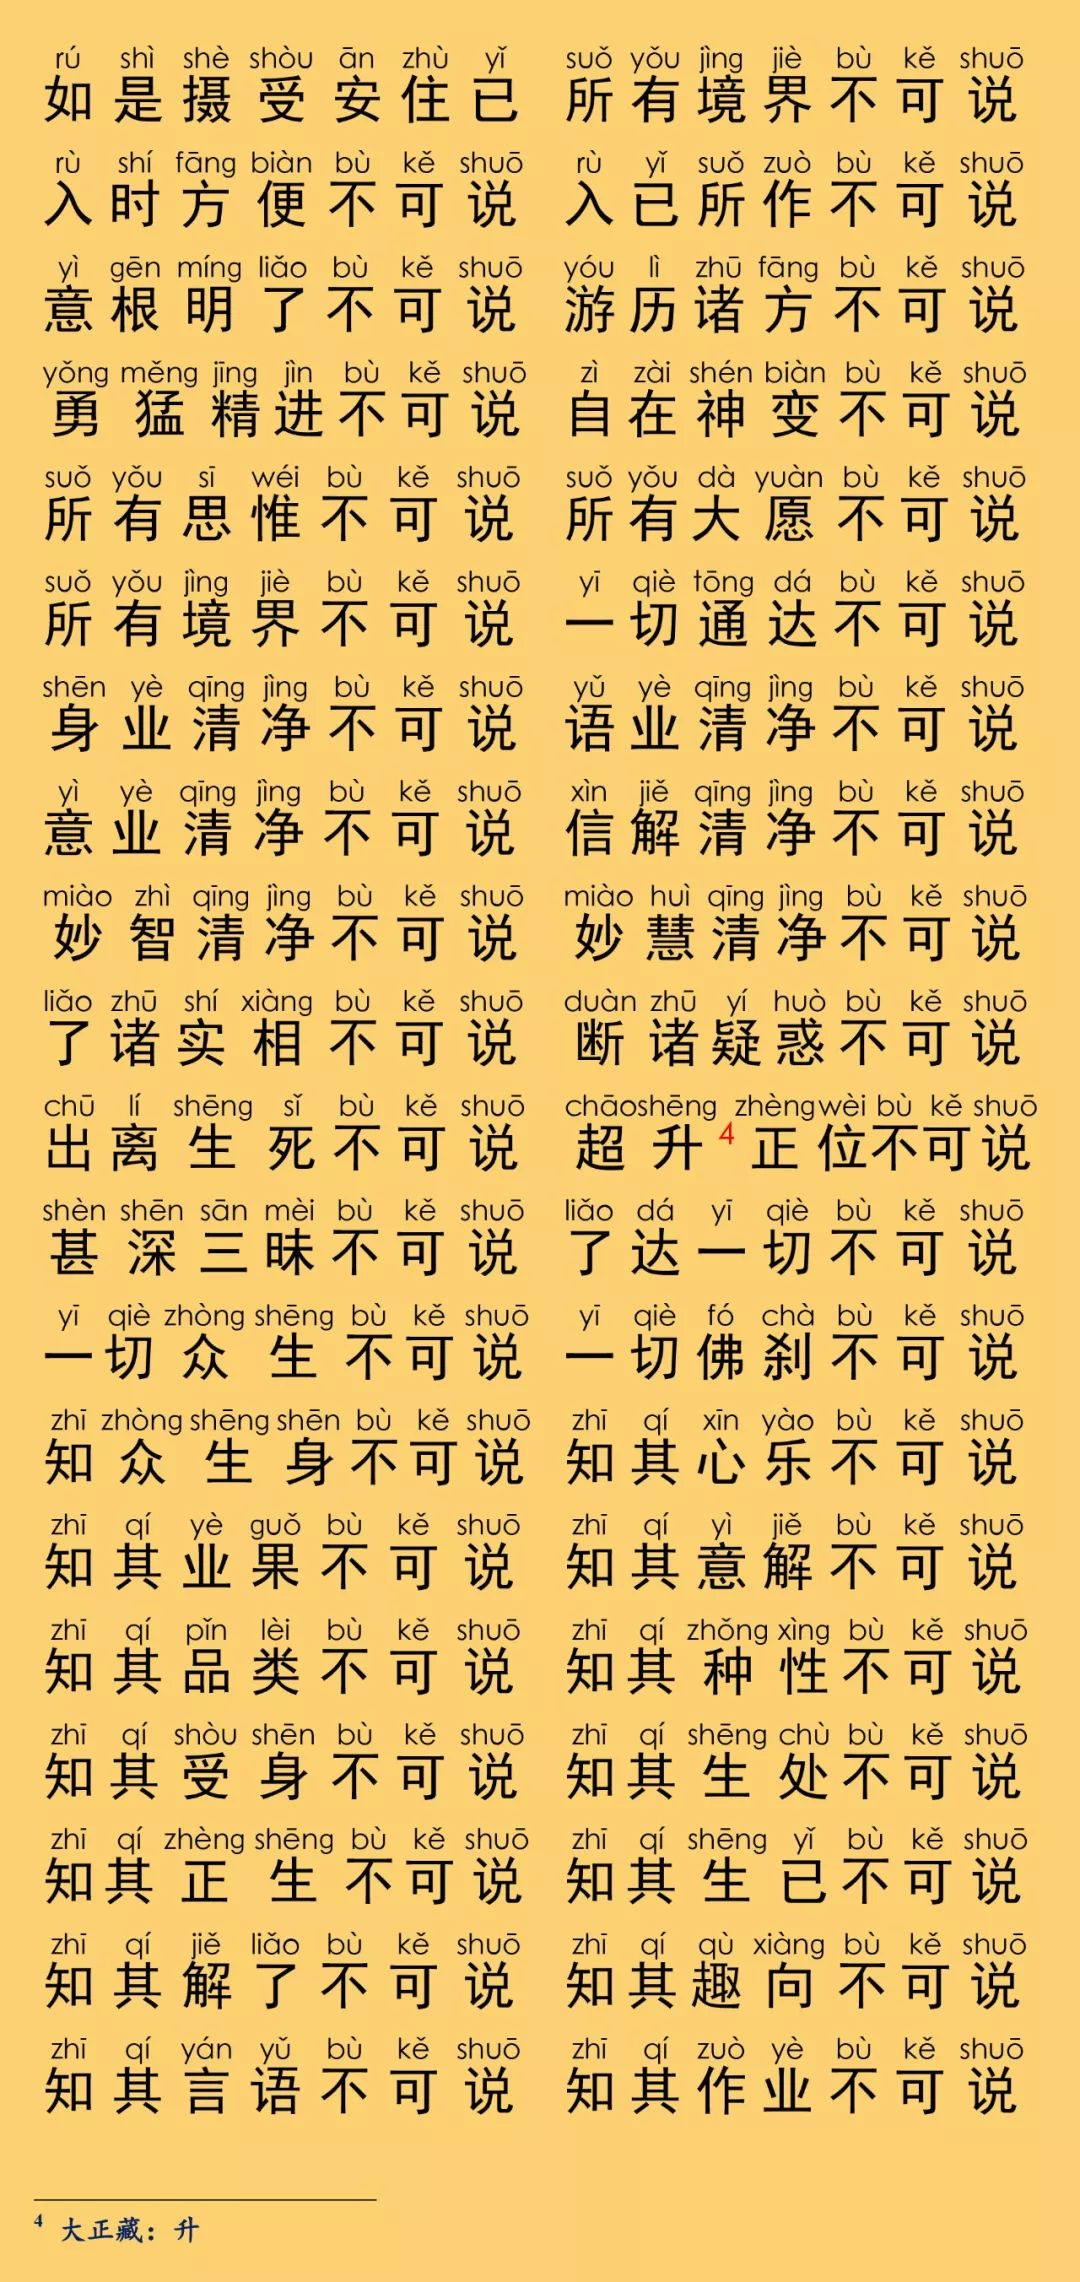 rú shì shè shòu ān zhù yǐ suǒ yǒu jìng jiè bù kě shuō
如是摄受安住已 所有境界不可说
rù shí fāng biàn bù kě shuō rù yǐ suǒ zuò bù kě shuō
入时方便不可说 入已所作不可说
yì gēn míng liǎo bù kě shuō yóu lì zhū fāng bù kě shuō
意根明了不可说 游历诸方不可说
yǒng měng jīng jìn bù kě shuō zì zài shén biàn bù kě shuō
勇猛精进不可说 自在神变不可说
suǒ yǒu sī wéi bù kě shuō suǒ yǒu dà yuàn bù kě shuō
所有思惟不可说 所有大愿不可说
suǒ yǒu jìng jiè bù kě shuō yī qiè tōng dá bù kě shuō
所有境界不可说 一切通达不可说
shēn yè qīng jìng bù kě shuō yǔ yè qīng jìng bù kě shuō
身业清净不可说 语业清净不可说
yì yè qīng jìng bù kě shuō xìn jiě qīng jìng bù kě shuō
意业清净不可说 信解清净不可说
miào zhì qīng jìng bù kě shuō miào huì qīng jìng bù kě shuō
妙智清净不可说 妙慧清净不可说
liǎo zhū shí xiàng bù kě shuō duàn zhū yí huò bù kě shuō
了诸实相不可说 断诸疑惑不可说
chū lí shēng sǐ bù kě shuō chāo shēng zhèng wèi bù kě shuō
出离生死不可说 超升4正位不可说
shèn shēn sān mèi bù kě shuō liǎo dá yī qiè bù kě shuō
甚深三昧不可说 了达一切不可说
yī qiè zhòng shēng bù kě shuō yī qiè fó chà bù kě shuō
一切众生不可说 一切佛刹不可说
zhī zhòng shēng shēn bù kě shuō zhī qí xīn yào bù kě shuō
知众生身不可说 知其心乐不可说
zhī qí yè guǒ bù kě shuō zhī qí yì jiě bù kě shuō
知其业果不可说 知其意解不可说
zhī qí pǐn lèi bù kě shuō zhī qí zhǒng xìng bù kě shuō
知其品类不可说 知其种性不可说
zhī qí shòu shēn bù kě shuō zhī qí shēng chù bù kě shuō
知其受身不可说 知其生处不可说
zhī qí zhèng shēng bù kě shuō zhī qí shēng yǐ bù kě shuō
知其正生不可说 知其生已不可说
zhī qí jiě liǎo bù kě shuō zhī qí qù xiàng bù kě shuō
知其解了不可说 知其趣向不可说
zhī qí yán yǔ bù kě shuō zhī qí zuò yè bù kě shuō
知其言语不可说 知其作业不可说
4 大正藏：升